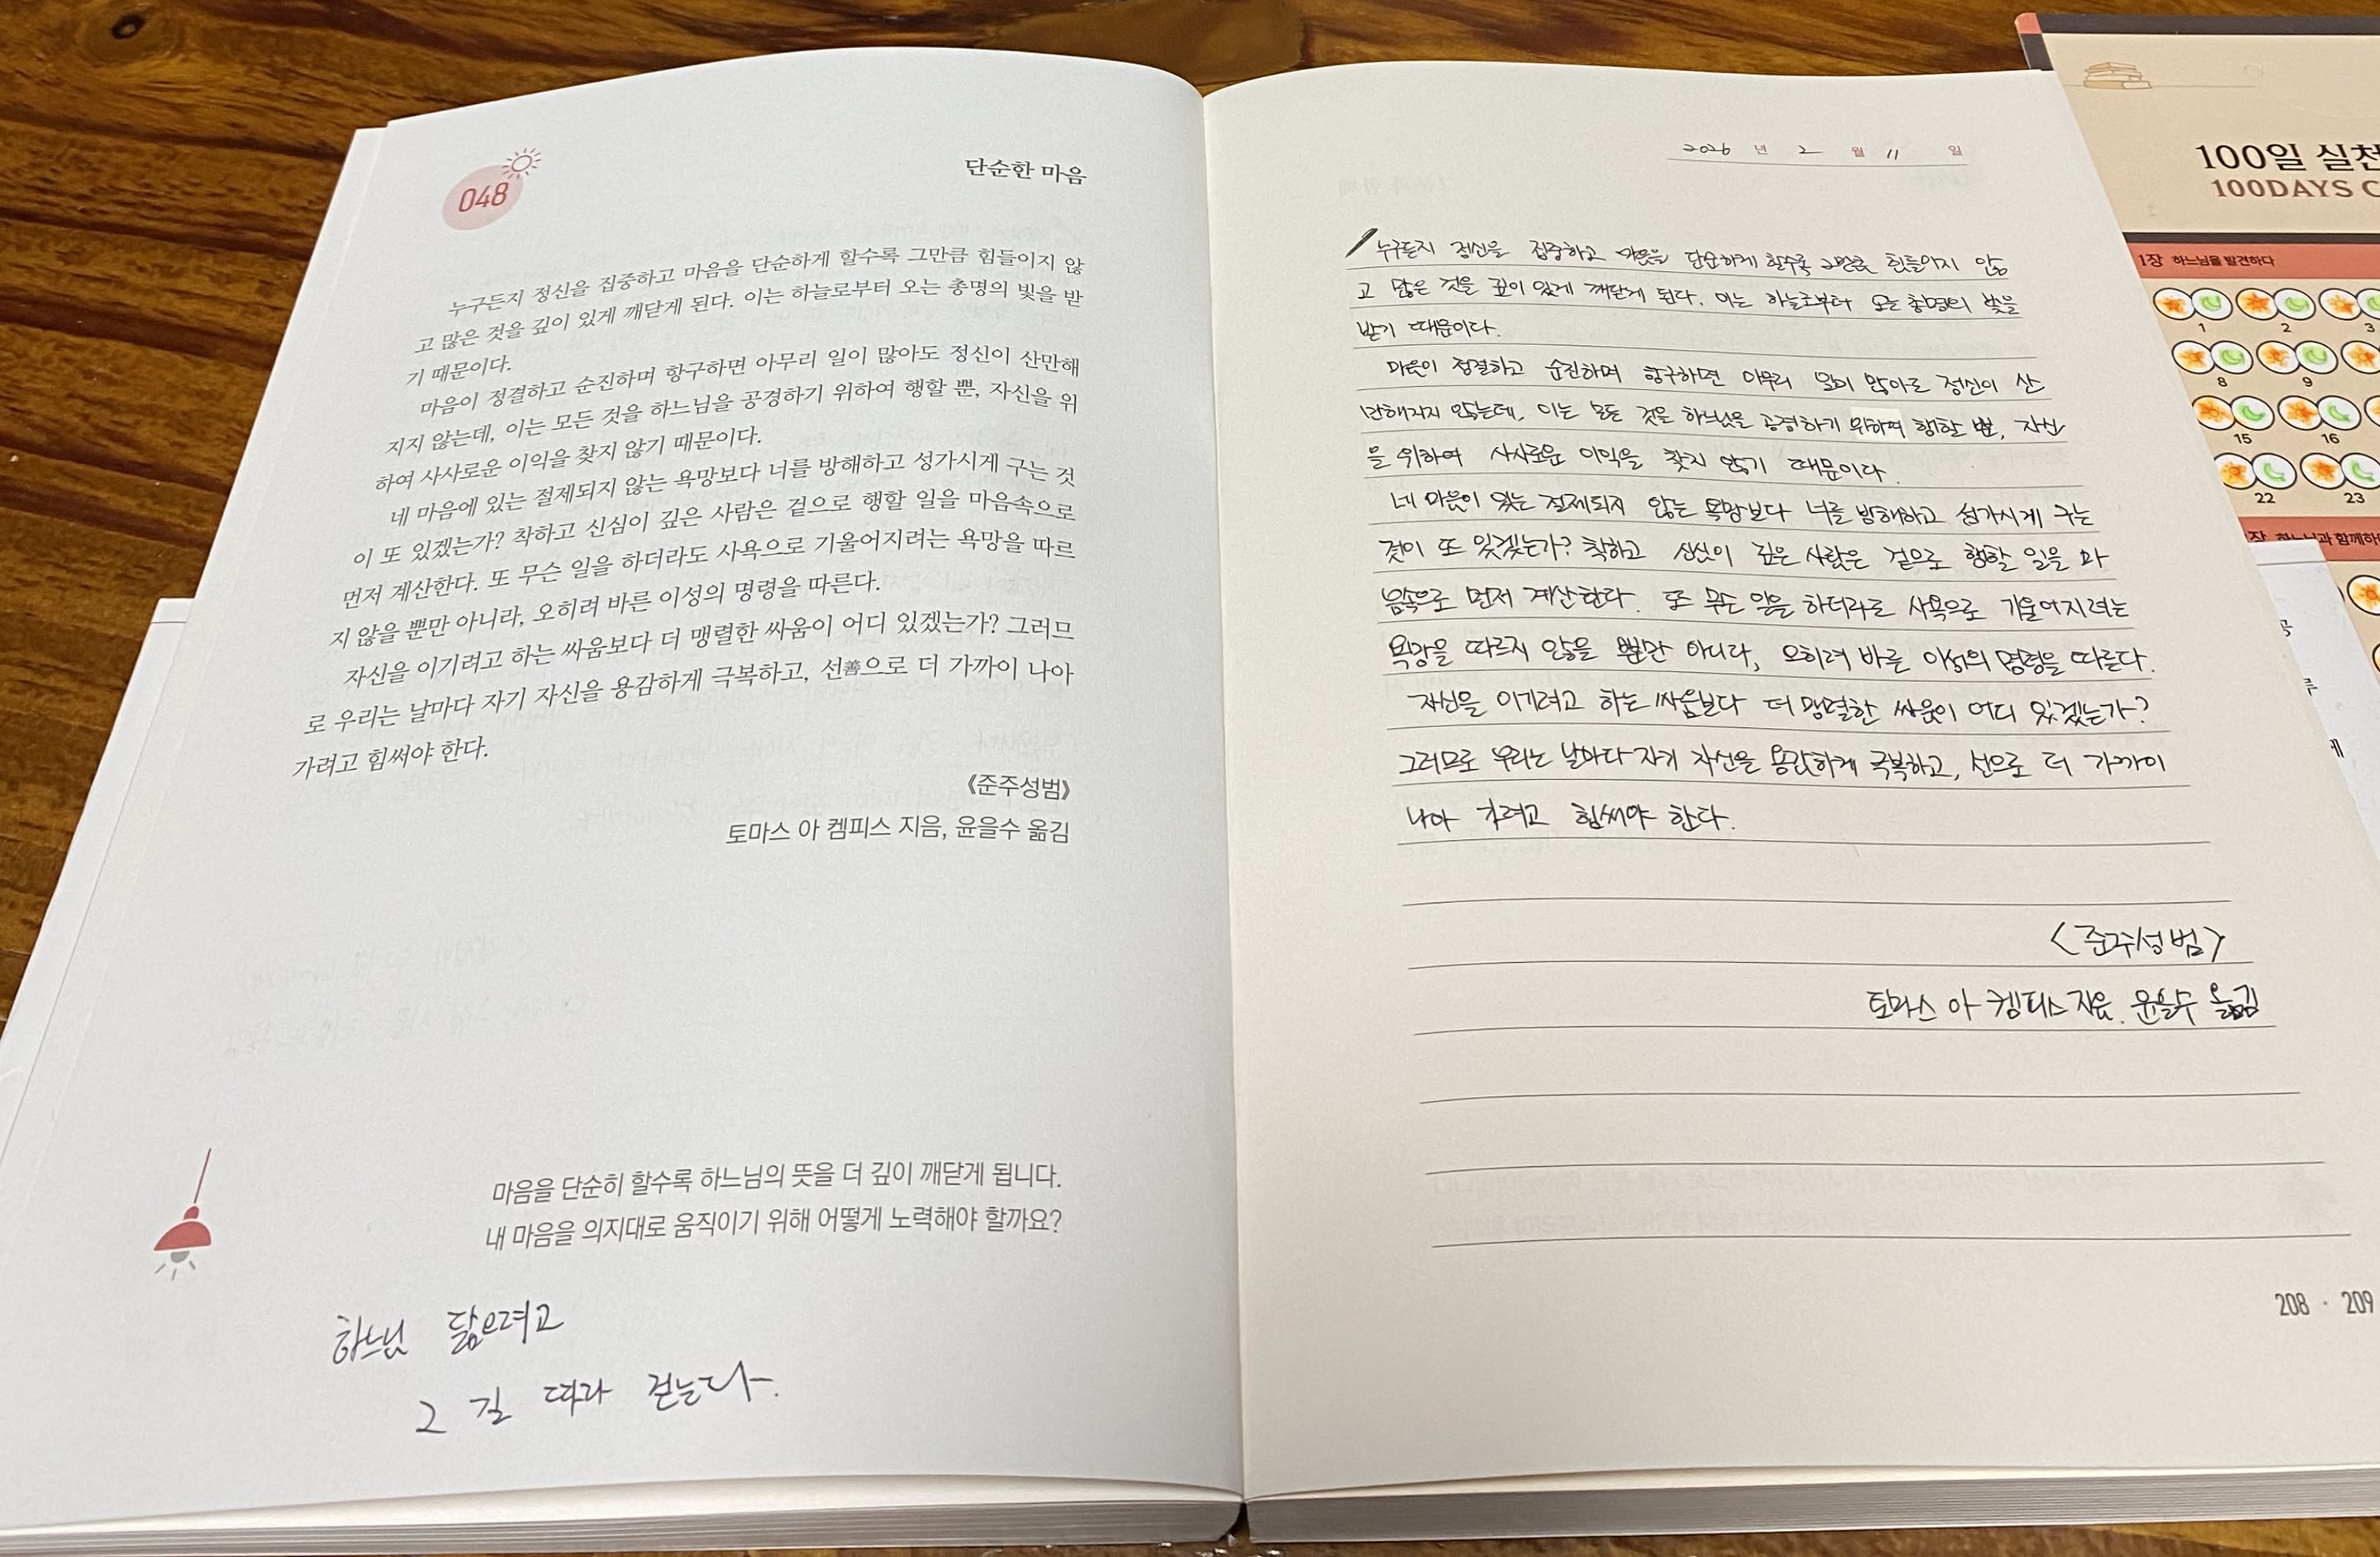 048
단순한 마음
누구든지 정신을 집중하고 마음을 단순하게 할수록 그만큼 힘들이지 않
고 많은 것을 깊이 있게 깨닫게 된다. 이는 하늘로부터 오는 총명의 빛을 받
기 때문이다.
마음이 정결하고 순진하며 항구하면 아무리 일이 많아도 정신이 산만해
지지 않는데, 이는 모든 것을 하느님을 공경하기 위하여 행할 뿐, 자신을 위
하여 사사로운 이익을 찾지 않기 때문이다.
네 마음에 있는 절제되지 않는 욕망보다 너를 방해하고 성가시게 구는 것
이 또 있겠는가? 착하고 신심이 깊은 사람은 겉으로 행할 일을 마음속으로
먼저 계산한다. 또 무슨 일을 하더라도 사욕으로 기울어지려는 욕망을 따르
지 않을 뿐만 아니라, 오히려 바른 이성의 명령을 따른다.
자신을 이기려고 하는 싸움보다 더 맹렬한 싸움이 어디 있겠는가? 그러므
로 우리는 날마다 자기 자신을 용감하게 극복하고, 선善으로 더 가까이 나아
가려고 힘써야 한다.
《준주성범》
토마스 아 켐피스 지음, 윤을수 옮김
마음을 단순히 할수록 하느님의 뜻을 더 깊이 깨닫게 됩니다.
내 마음을 의지대로 움직이기 위해 어떻게 노력해야 할까요?
하느님 닮으려고
그 길 따라 걷는다.
2026 년 2 월 11 일
누구든지 정신을 집중하고 마음을 단순하게 할수록 그만큼 힘들이지 않
고 많은 것을 깊이 있게 깨닫게 된다. 이는 하늘로부터 오는 총명의 빛을
받기 때문이다.
마음이 정결하고 순진하며 항구하면 아무리 일이 많아도 정신이 산
만해지지 않는데, 이는 모든 것을 하느님을 공경하기 위하여 행할 뿐, 자신
을 위하여 사사로운 이익을 찾지 않기 때문이다.
네 마음이 있는 절제되지 않는 욕망보다 너를 방해하고 성가시게 구는
것이 또 있겠는가? 착하고 신심이 깊은 사람은 겉으로 행할 일을 마
음속으로 먼저 계산한다. 또 무슨 일을 하더라도 사욕으로 기울어지려는
욕망을 따르지 않을 뿐만 아니라, 오히려 바른 이성의 명령을 따른다.
자신을 이기려고 하는 싸움보다 더 맹렬한 싸움이 어디 있겠는가?
그러므로 우리는 날마다 자기 자신을 용감하게 극복하고, 선으로 더 가까이
나아 가려고 힘써야 한다.
<준주성범>
토마스 아 켐피스 지음, 윤을수 옮김
208 · 209
100일 실천
100DAYS C
1장 하느님을 발견하다
1 2 3
8 9
15 16
22 23
장 하느님과 함께하